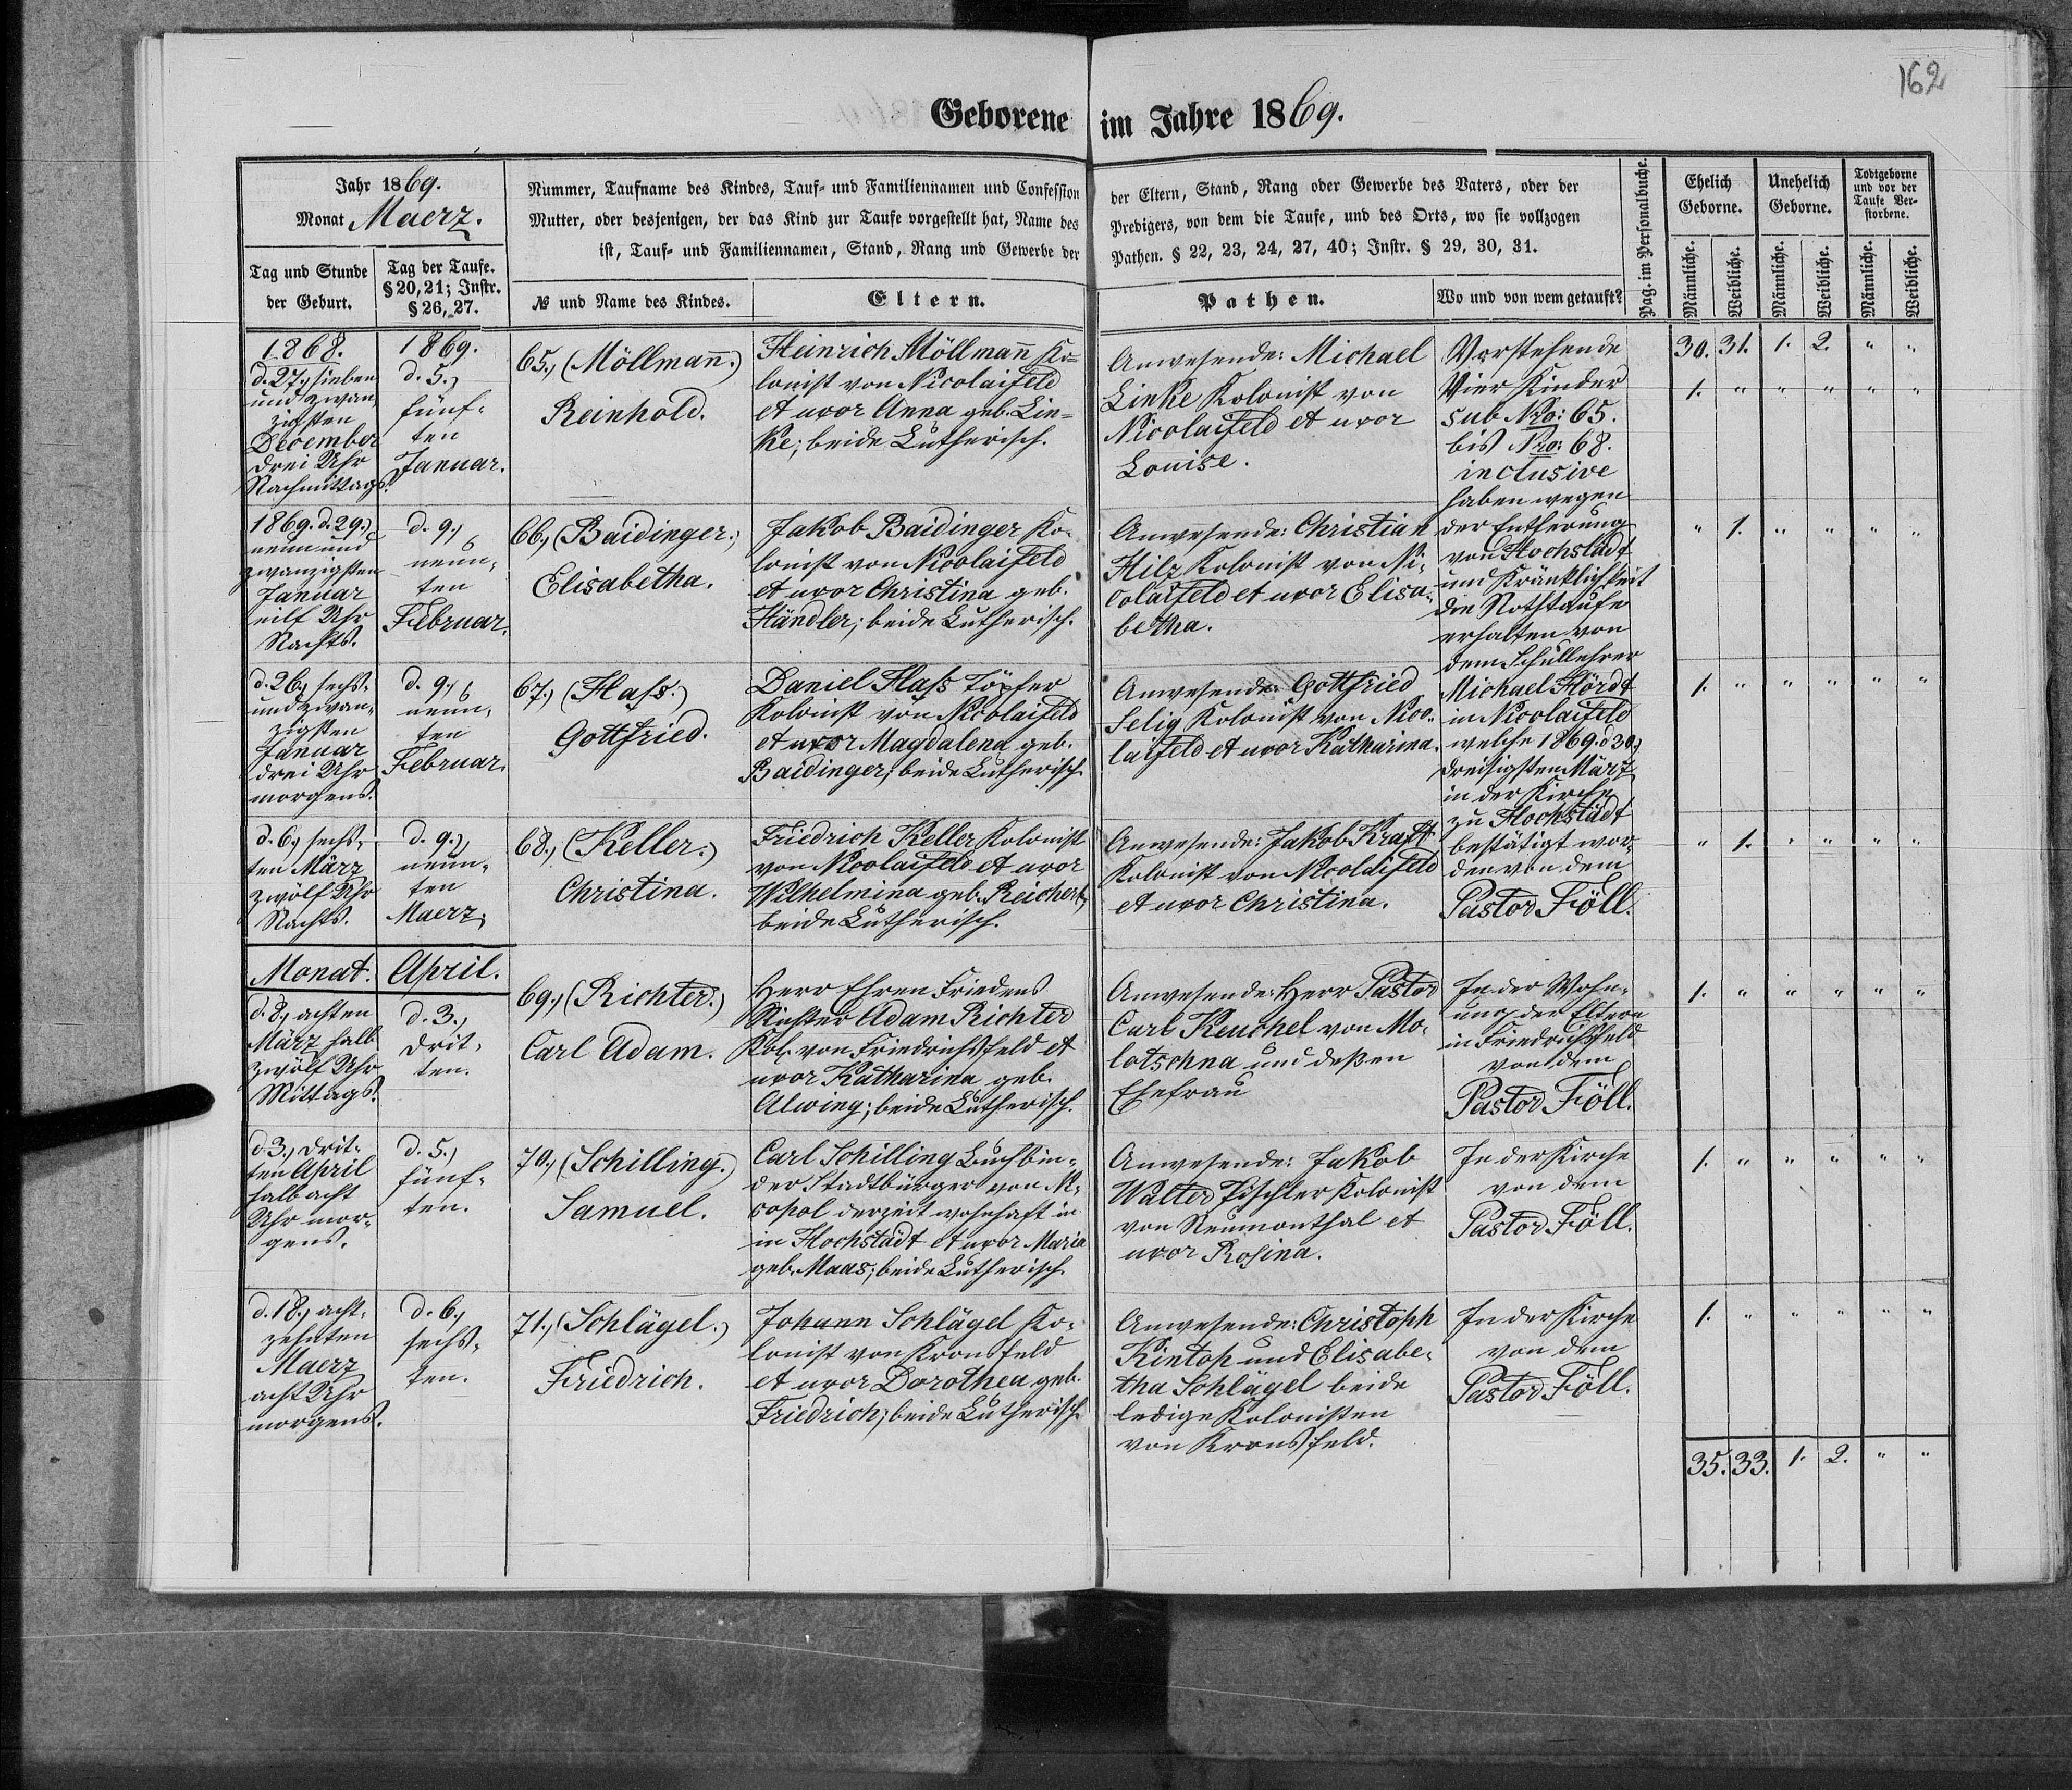 162
Geborene im Jahre 1869.
Jahr 1869.
Monat Maerz.
Tag und Stunde
der Geburt.
Tag der Taufe.
§ 20, 21; Instr.
§ 26, 27.
Nummer, Taufname des Kindes, Tauf- und Familiennamen und Confession
Mutter, oder desjenigen, der das Kind zur Taufe vorgestellt hat, Name des
ist, Tauf- und Familiennamen, Stand, Rang und Gewerbe der
№ und Name des Kindes.
Eltern.
der Eltern, Stand, Rang oder Gewerbe des Vaters, oder der
Predigers, von dem die Taufe, und des Orts, wo sie vollzogen
Pathen. § 22, 23, 24, 27, 40; Instr. § 29, 30, 31.
Pathen.
Wo und von wem getauft?
Pag. im Personalbuche.
Ehelich
Geborne.
Unehelich
Geborne.
Todtgeborne
und vor der
Taufe Ver-
storbene.
Männliche.
Weibliche.
Männliche.
Weibliche.
Männliche.
Weibliche.
1868.
d. 27., sieben
und zwan-
zigsten
December
drei Uhr
Nachmittags.
1869.
d. 5.,
fünf-
ten
Januar.
65., (Möllmañ.)
Reinhold.
Heinrich Möllmañ Ko-
lonist von Nicolaifeld
et uxor Anna geb. Lin-
ke; beide Lutherisch.
Anwesende: Michael
Linke Kolonist von
Nicolaifeld et uxor
Louise.
Vorstehende
Vier Kinder
sub Nro: 65.
bis Nro: 68.
inclusive
haben wegen
der Entfernung
von Hochstädt
und Kränklichkeit
die Nothtaufe
erhalten von
dem Schullehrer
Michael Hördt
in Nicolaifeld
welche 1869. d 30.,
dreisigsten März
in der Kirche
zu Hochstädt
bestätigt wor-
den von dem
Pastor Föll.
30. 31. 1. 2. " "
1. " " " " "
1869. d. 29.,
neun und
zwanzigsten
Januar
eilf Uhr
Nachts.
d. 9.,
neun-
ten
Februar.
66., (Baidinger.)
Elisabetha.
Jakob Baidinger Ko-
lonist von Nicolaifeld
et uxor Christina geb.
Händler; beide Lutherisch.
Anwesende: Christian
Hilz Kolonist von Ni-
colaifeld et uxor Elisa-
betha.
" 1. " " " "
d. 26., sechs-
und zwan-
zigsten
Januar
drei Uhr
morgens.
d. 9.,
neun-
ten
Februar.
67., (Hass.)
Gottfried.
Daniel Hass Töpfer
Kolonist von Nicolaifeld
et uxor Magdalena geb.
Baidinger; beide Lutherisch.
Anwesende: Gottfried
Selig Kolonist von Nico-
laifeld et uxor Katharina.
1. " " " " "
d. 6., sechs-
ten März
zwölf Uhr
Nachts.
d. 9.,
neun-
ten
Maerz.
68., (Keller.)
Christina.
Friedrich Keller Kolonist
von Nicolaifeld et uxor
Wilhelmina geb. Reichert,
beide Lutherisch.
Anwesende: Jakob Kraft
Kolonist von Nicolaifeld
et uxor Christina.
" 1. " " " "
Monat. April.
d. 8., achten
März halb
zwölf Uhr
Mittags.
d. 3.,
drit-
ten.
69., (Richter.)
Carl Adam.
Herr Ehren Friedens
Richter Adam Richter
Kol. von Friedrichsfeld et
uxor Katharina geb.
Alwing; beide Lutherisch.
Anwesende: Herr Pastor
Carl Keuchel von Mo-
lotschna und deßen
Ehefrau
In der Wohn-
ung der Eltern
in Friedrichsfeld
von dem
Pastor Föll.
1. " " " " "
d. 3., drit-
ten April
halb acht
Uhr mor-
gens.
d. 5.,
fünf-
ten.
70., (Schilling.)
Samuel.
Carl Schilling Buchbin-
der Stadtbürger von Ni-
copol derzeit wohnhaft in
in Hochstädt et uxor Maria
geb. Maas; beide Lutherisch.
Anwesende: Jakob
Walter Tischler Kolonist
von Neumonthal et
uxor Rosina.
In der Kirche
von dem
Pastor Föll.
1. " " " " "
d. 18., acht-
zehnten
Maerz
acht Uhr
morgens.
d. 6.,
sechs-
ten.
71., (Schlägel.)
Friedrich.
Johann Schlägel Ko-
lonist von Kronsfeld
et uxor Dorothea geb.
Friedrich; beide Lutherisch.
Anwesende: Christoph
Kintop und Elisabe-
tha Schlägel beide
ledige Kolonisten
von Kronsfeld.
In der Kirche
von dem
Pastor Föll.
1. " " " " "
35. 33. 1. 2. " "